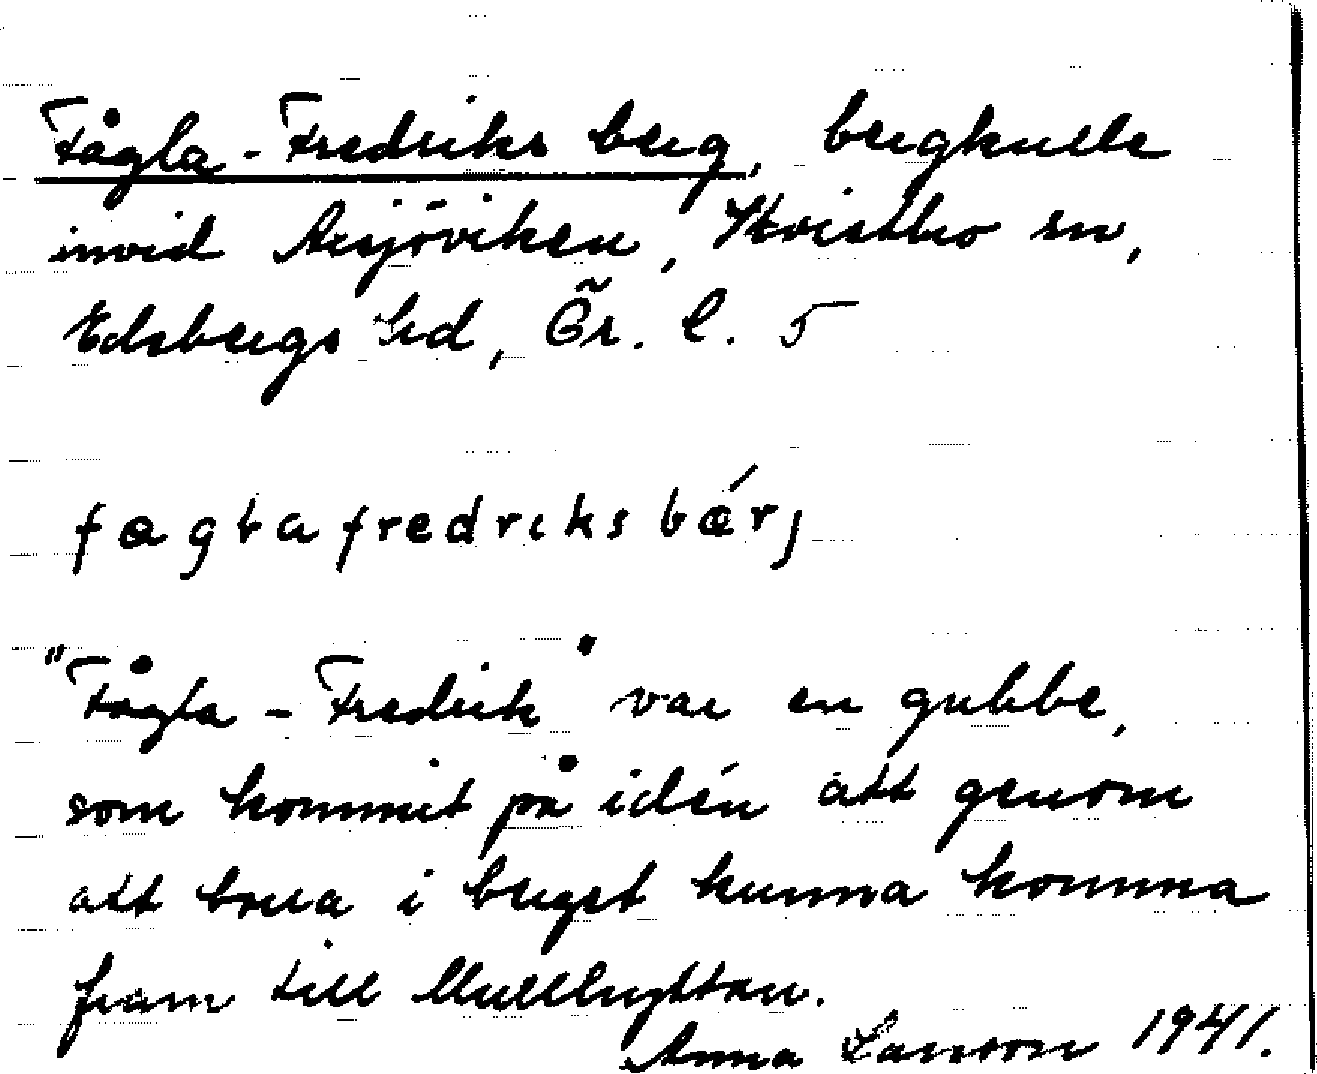 Fågla-Fredriks berg, bergkulle
invid Avsjöviken, Kvistbro sn,
Edsbergs hd, Ör. l. 5
fagtafredriksbǽrj
"Fågla-Fredrik" var en gubbe,
som kommit på idén att genom
att borra i berget kunna komma
fram till Mullhyttan.
Anna Larsson 1941.